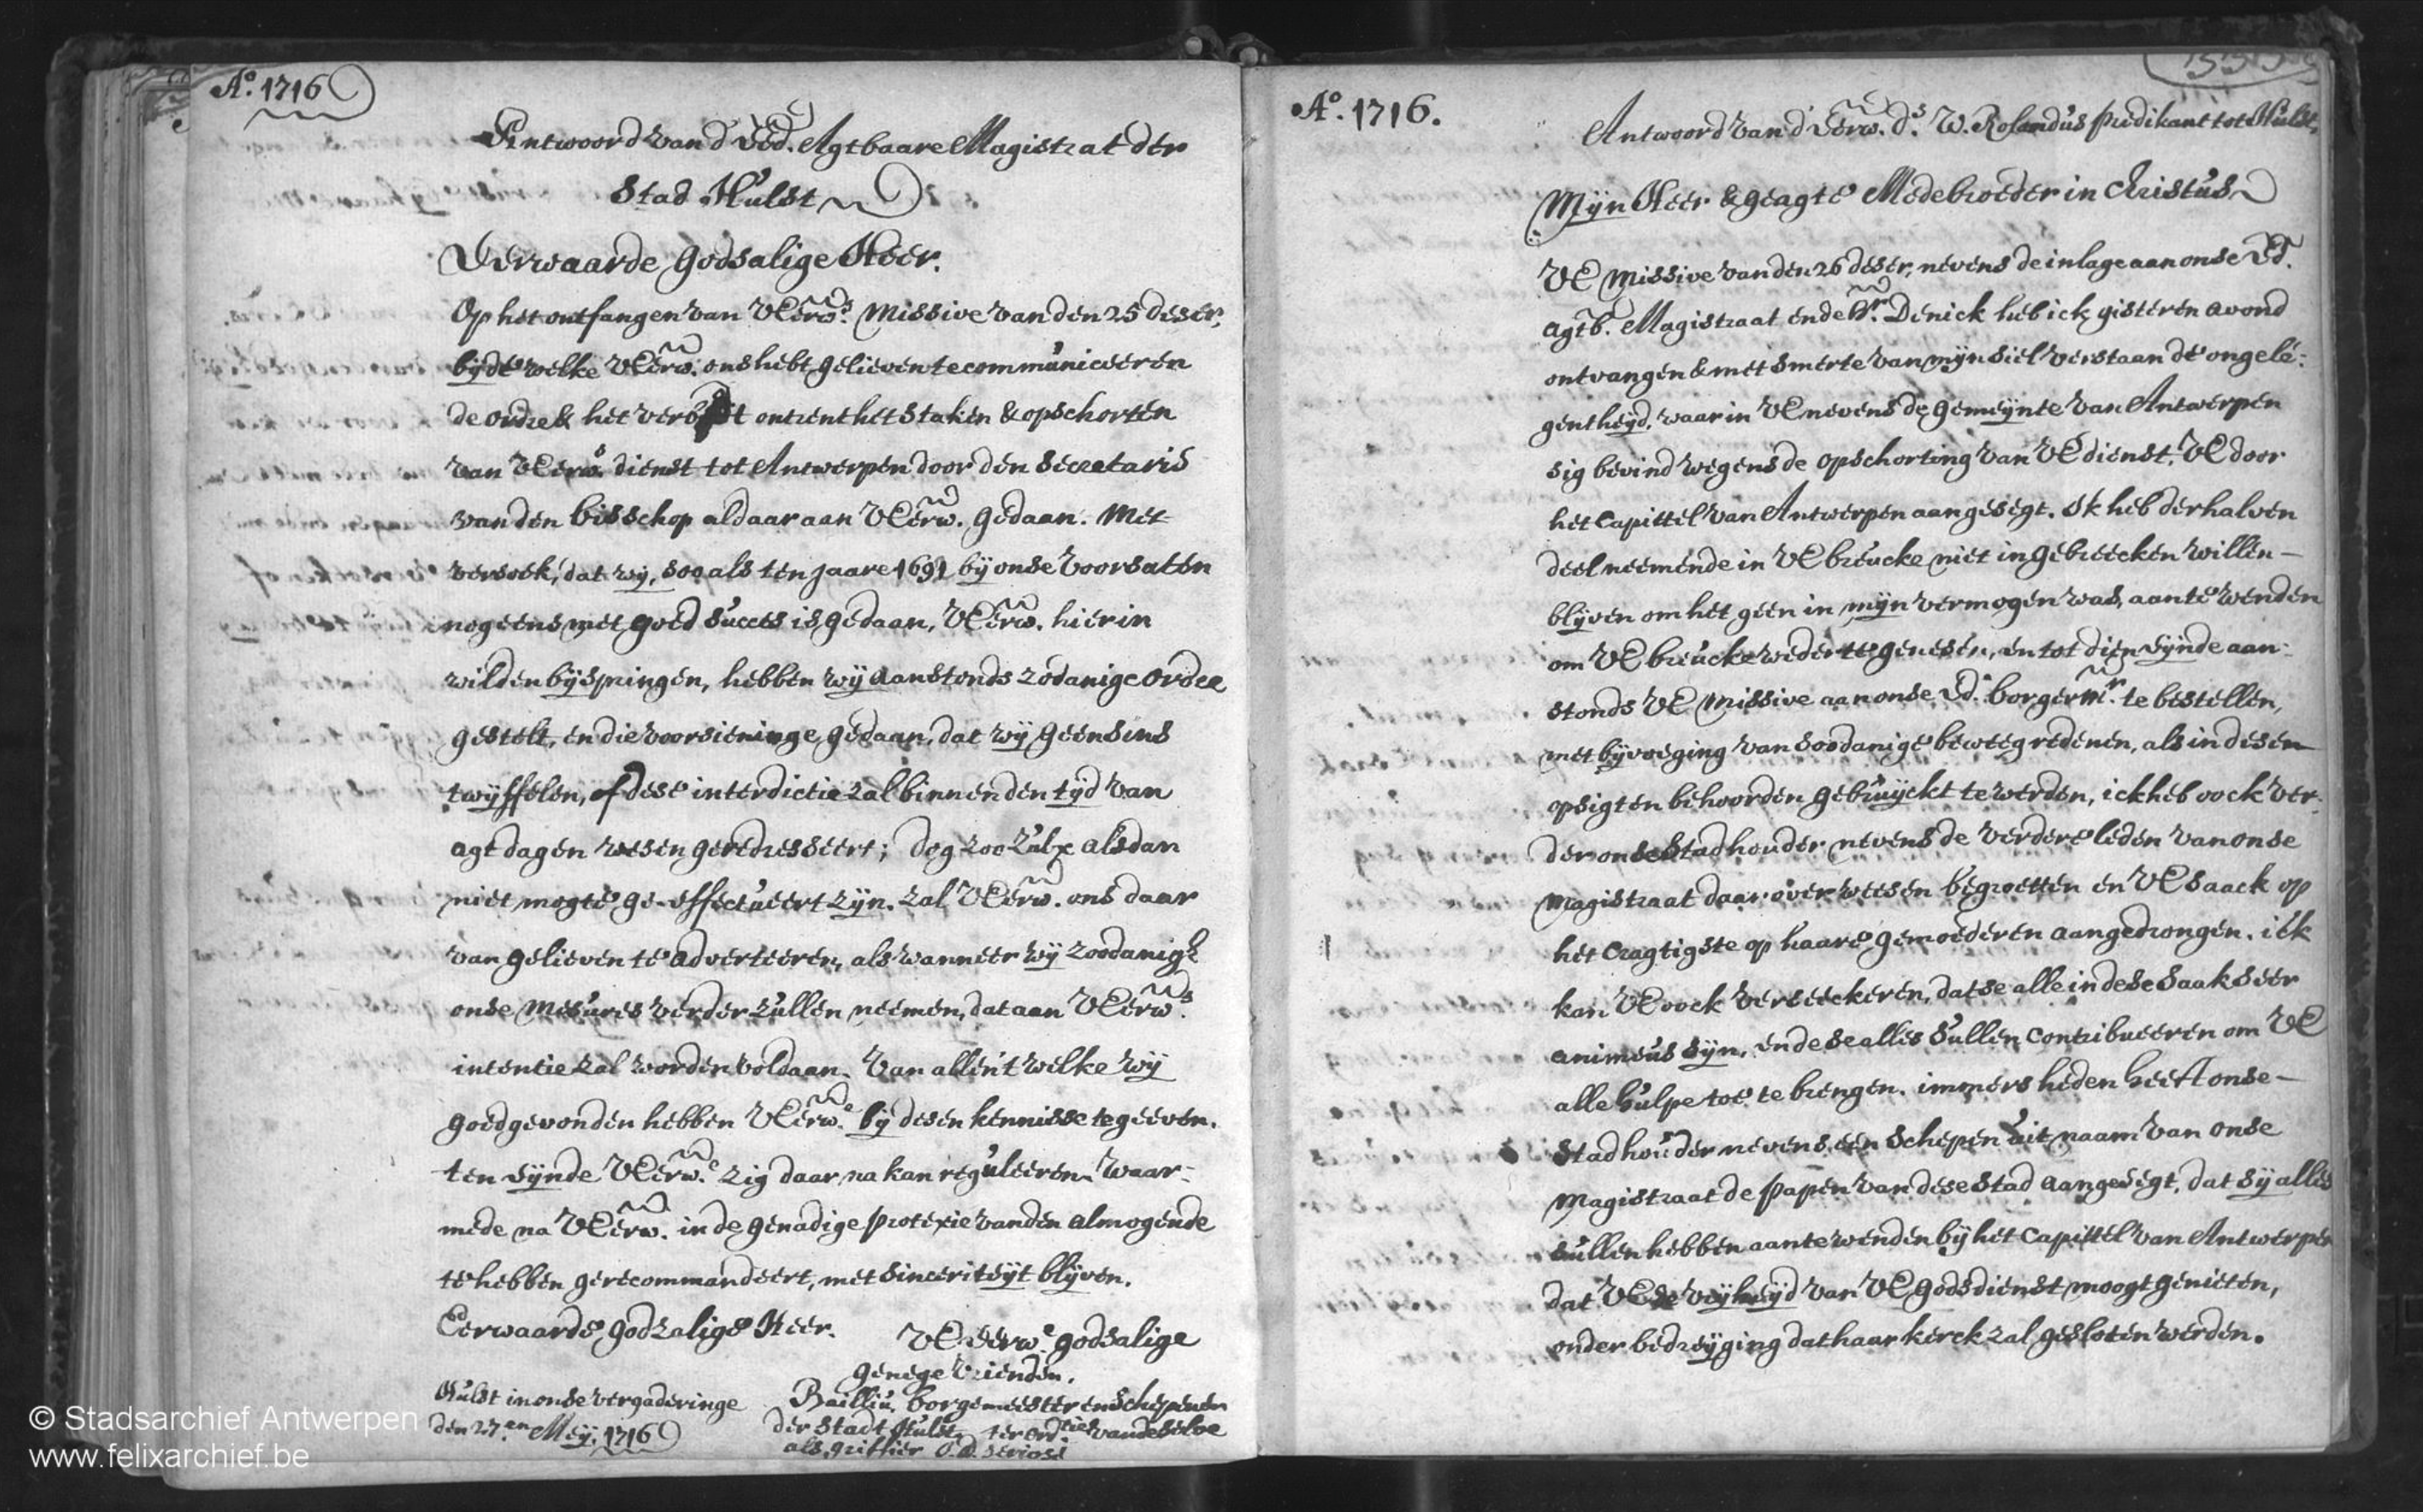 A.º 1716
Antwoord van d' Ed. Agtbaare Magistraat der
Stad Hulst
Eerwaarde Godsalige Heer.
Op het ontfangen van UEerw.s Missive van den 25 deser,
by de welke UEerw. ons hebt gelieven te communiceeren
de ordre & het verbot ontrent het staken & opschorten
van UEerws dienst tot Antwerpen door den secretaris
van den bisschop aldaar aan UEerw. gedaan. Met
versoek, dat wij, soo als ten jaare 1691 bij onse voorsaten
nog eens met goed succes is gedaan, UEerw. hier in
wilden bijspringen, hebben wij aanstonds zodanige ordre
gestelt, en die voorsieninge gedaan, dat wij geensins
twijffelen, of dese interdictie zal binnen den tijd van
agt dagen wesen geredresseert; dog zoo zulx alsdan
niet mogte ge-effectueert zijn. zal UEerw. ons daar
van gelieven te adverteeren, als wanneer wij zoodanige
onse mesures verder zullen neemen, dat aan UEerw.s
intentie zal worden voldaan. Van allen 't welke wij
goedgevonden hebben UEerw.e bij desen kennisse te geeven.
ten eijnde UEerw.e zig daar na kan reguleeren. Waar-
mede na UEerw. in de genadige protexie van den almogende
te hebben gerecommandeert, met sinceriteijt blijven.
Eerwaarde godzalige Heer.
UEEerw.e godsalige
genege Vrienden.
Hulst in onse vergaderinge
den 27.en Meij. 1716
Bailliu, borgemeester en schepenen
der stadt Hulst, ter ord.tie van deselve
als griffier
A.º 1716.
Antwoord van d' Eerw. d.s W. Rolandus predikant tot Hulst,
Mijn Heer & geagte Medebroeder in Christus
UE Missive van den 26 deser, nevens de inlage aan onse Ed.
agtb. Magistraat ende Hr. Denick heb ick gisteren avond
ontvangen & met smerte van mijn siel verstaan de ongele-
gentheijd, waar in UE nevens de gemeijnte van Antwerpen
sig bevind wegens de opschorting van UE dienst, UE door
het Capittel van Antwerpen aangesegt. Ik heb derhalven
deelneemende in UE breucke niet in gebreecken willen
blijven om het geen in mijn vermogen was, aan te wenden
om UE breucke weder te genesen, en tot dien eijnde aan-
stonds UE Missive aan onse Ed. borgerm.r te bestellen,
met bijvoeging van soodanige beweegredenen, als in desen
opsigten behoorden gebruijckt te werden, ick heb oock ver-
der onse Stadhouder nevens de verdere leden van onse
Magistraat daar over weesen begroetten en UE saack op
het cragtigste op haare gemoederen aangedrongen. ick
kan UE oock verseeckeren, dat se alle in dese saak seer
animeus sijn, en dese alles sullen contribueeren om UE
alle hulpe toe te brengen. immers heden heeft onse
Stadhouder nevens een Schepen uit naam van onse
Magistraat de papen van dese stad aangesegt, dat sij alles
sullen hebben aan te wenden bij het Capittel van Antwerpen
dat UE de vrijheijd van UE godsdienst moogt genieten,
onder bedreijging dat haar kerck zal gesloten werden.
© Stadsarchief Antwerpen
www.felixarchief.be